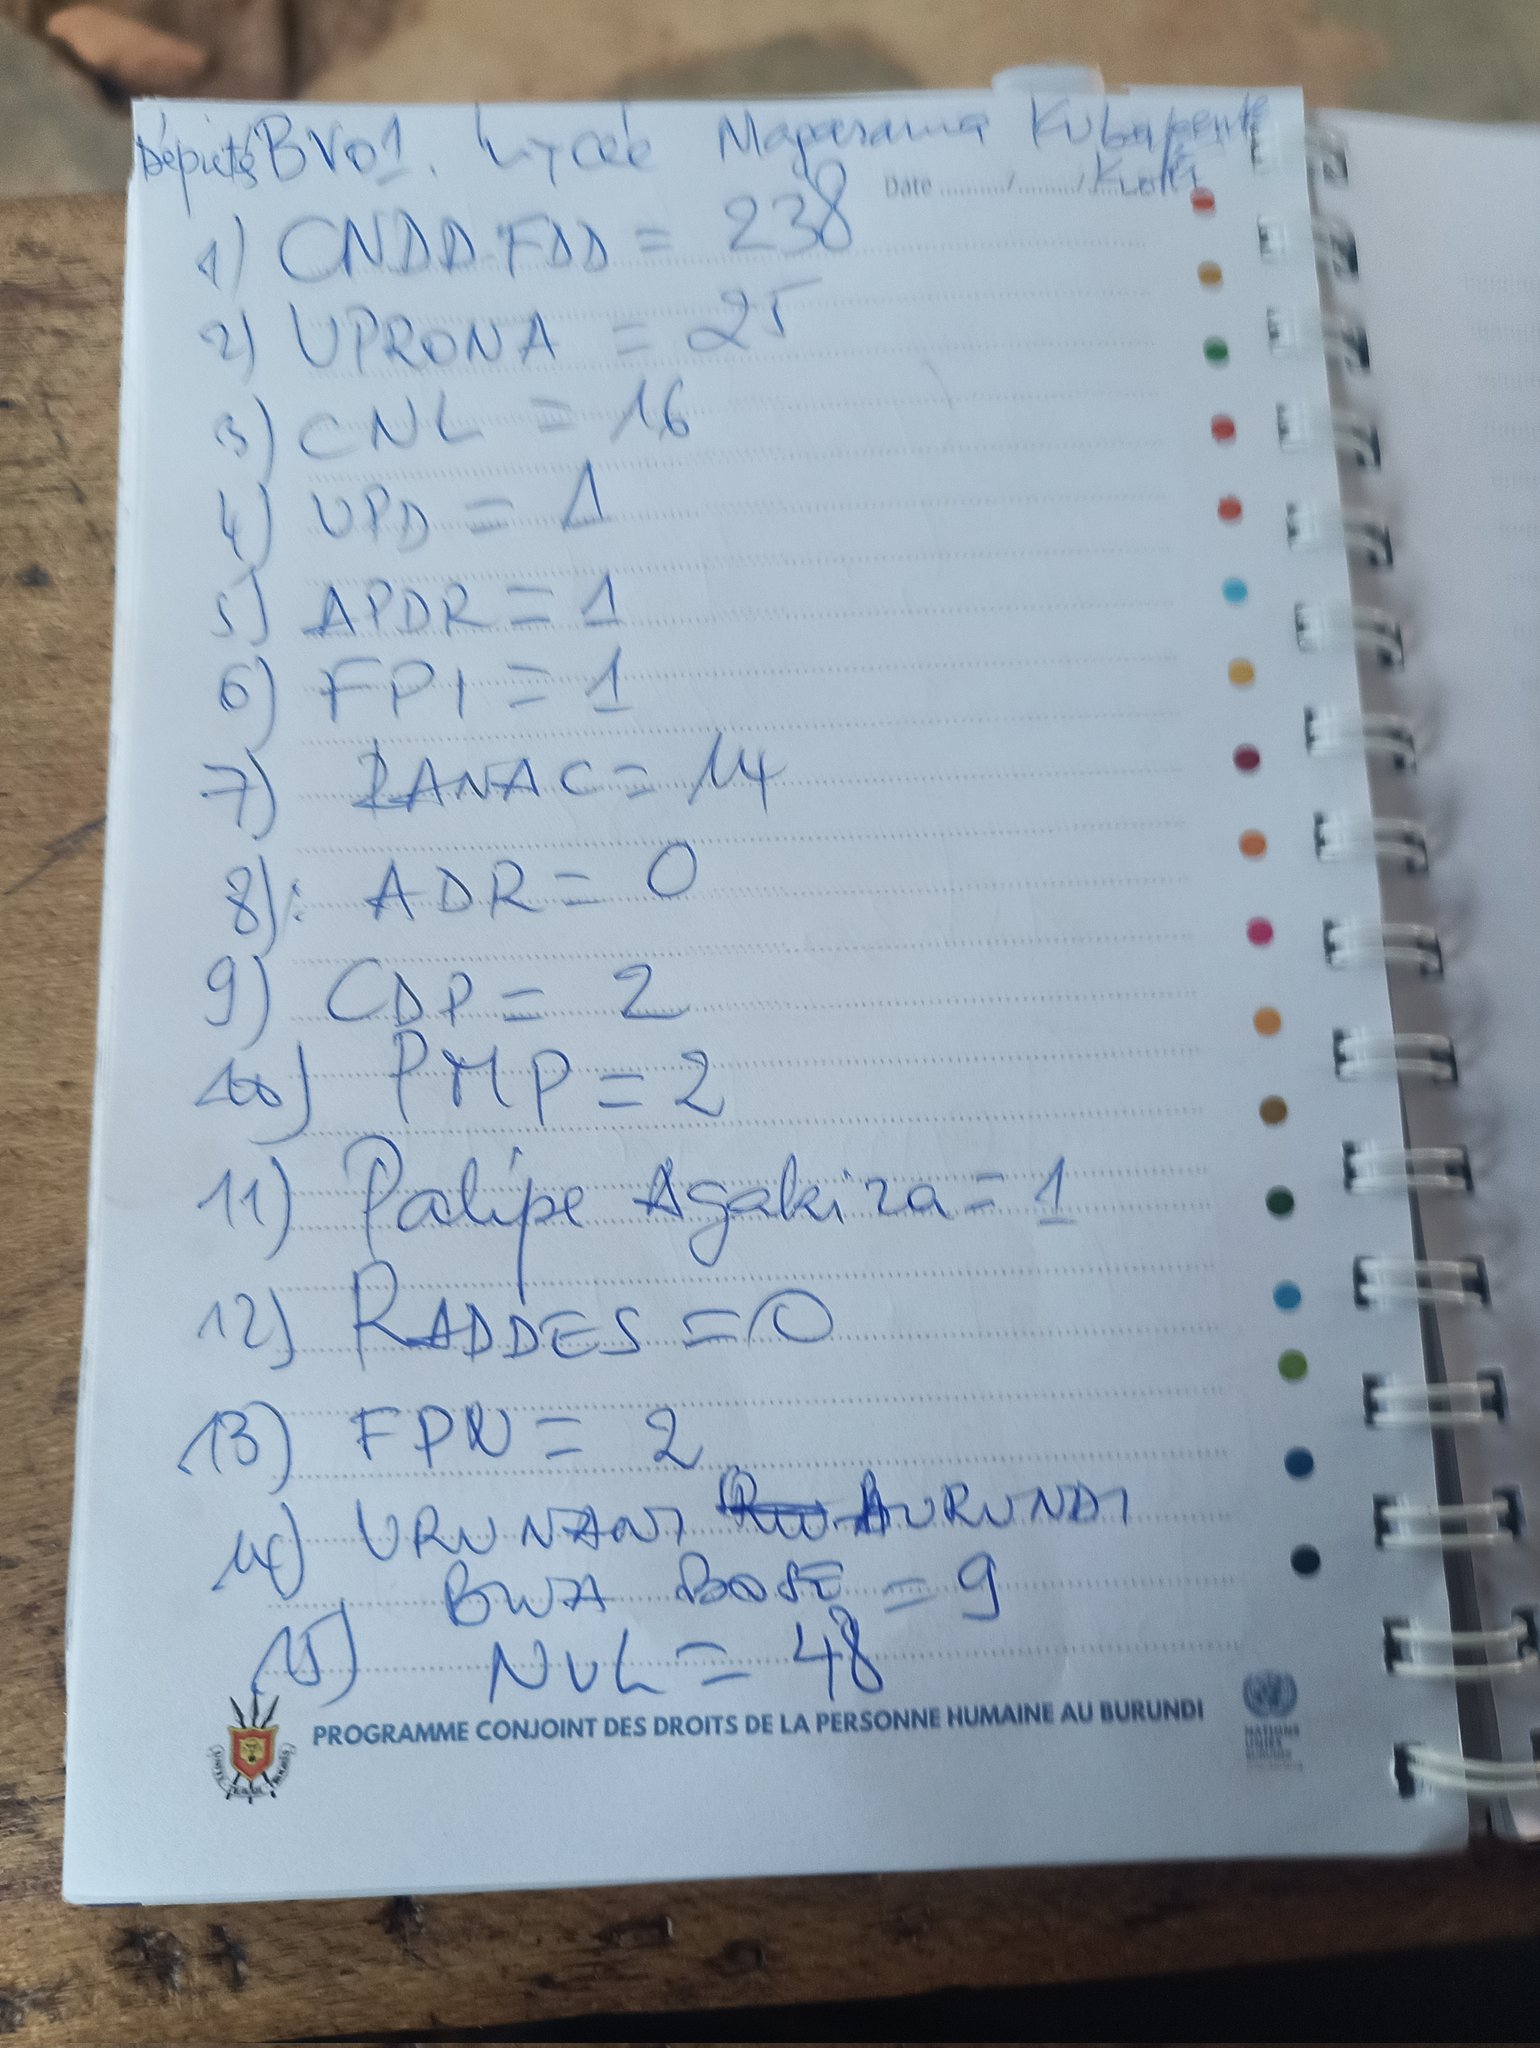 Députés BV01. Lycée Magarama
Date ......../......../
1) CNDD.FDD = 238
2) UPRONA = 25
3) CNL = 16
4) UPD = 1
5) APDR = 1
6) FPI = 1
7) RANAC = 14
8): ADR = 0
9) CDP = 2
10) PMP = 2
11) Palipe Agakiza = 1
12) RADDES = 0
13) FPN = 2
14) URUNANI BURUNDI
BWA BOSE = 9
15) NUL = 48
PROGRAMME CONJOINT DES DROITS DE LA PERSONNE HUMAINE AU BURUNDI
NATIONS
UNIES